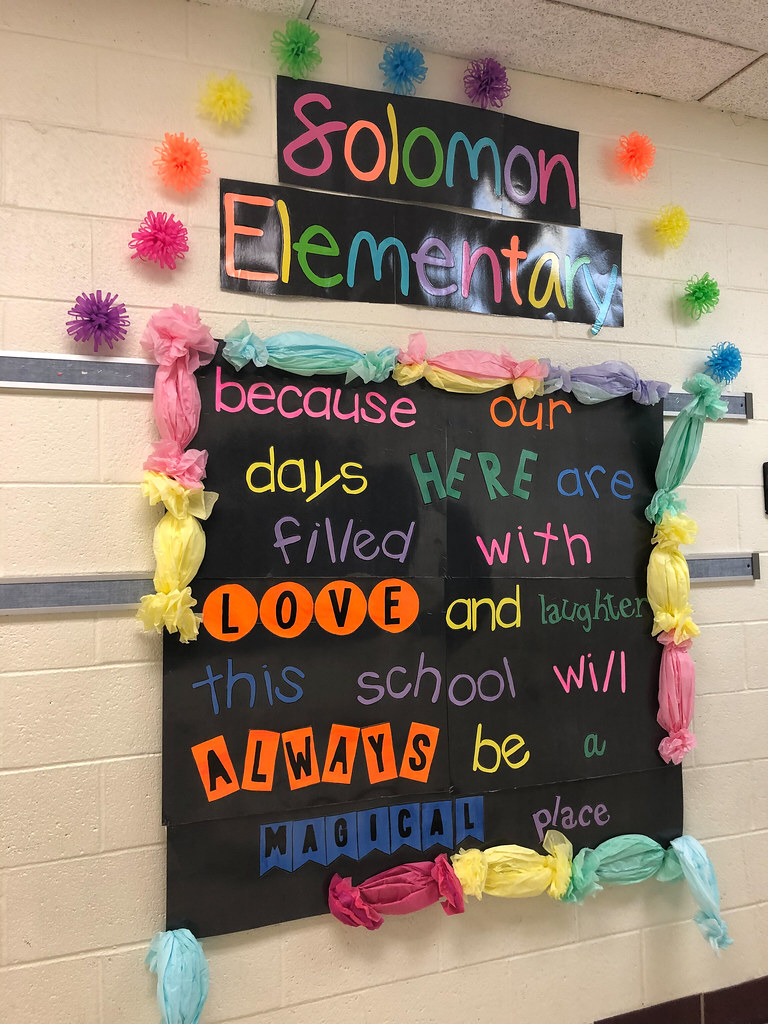 Solomon
Elementary
because our
days HERE are
filled with
LOVE and laughter
this school will
ALWAYS be a
MAGICAL place